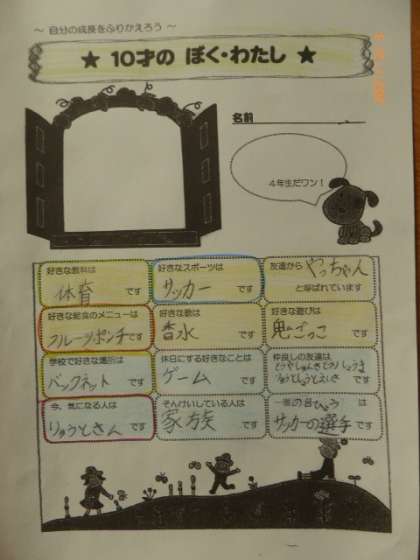 ～ 自分の成長をふりかえろう ～
★ 10才の ぼく・わたし ★
名前
4年生だワン！
好きな教科は
体育 です
好きなスポーツは
サッカー です
友達から やっちゃん
と呼ばれています
好きな給食のメニューは
フルーツポンチ です
好きな歌は
香水 です
好きな遊びは
鬼ごっこ です
学校で好きな場所は
バックネット です
休日にする好きなことは
ゲーム です
仲良しの友達は
です
今、気になる人は
りゅうとさん です
そんけいしている人は
家族 です
一番の
は
サッカーの選手 です